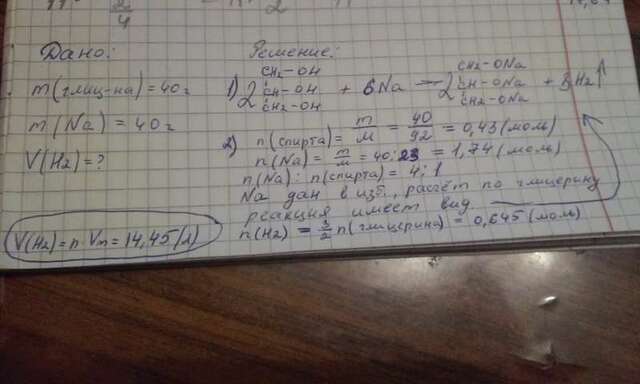 Дано:
m(глиц-на) = 40г
m(Na) = 40г
V(H2) = ?
V(H2) = n·Vm = 14,45(л)
Решение:
1) 2 CH2-OH CH-OH CH2-OH + 6Na — 2 CH2-ONa CH-ONa CH2-ONa + 3H2↑
2) n(спирта) = m/M = 40/92 = 0,43(моль)
n(Na) = m/M = 40:23 = 1,74(моль)
n(Na) : n(спирта) = 4:1
Na дан в изб., расчёт по глицерину
реакция имеет вид
n(H2) = 3/2 n(глицерина) = 0,645(моль)